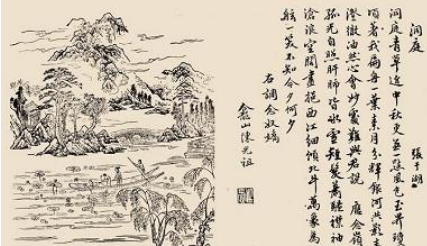 洞庭
張于湖
洞庭青草近中秋更無一點風色玉界瓊
頃著我扁舟一葉素月分輝銀河共影
澄澈油然心會妙處難與君說 應念嶺
孤光自照肝肺皆冰雪短髮蕭騷襟袖
滄浪空闊盡挹西江細傾北斗萬象為
舷一笑不知今夕何夕
右調念奴嬌
山陳光祖